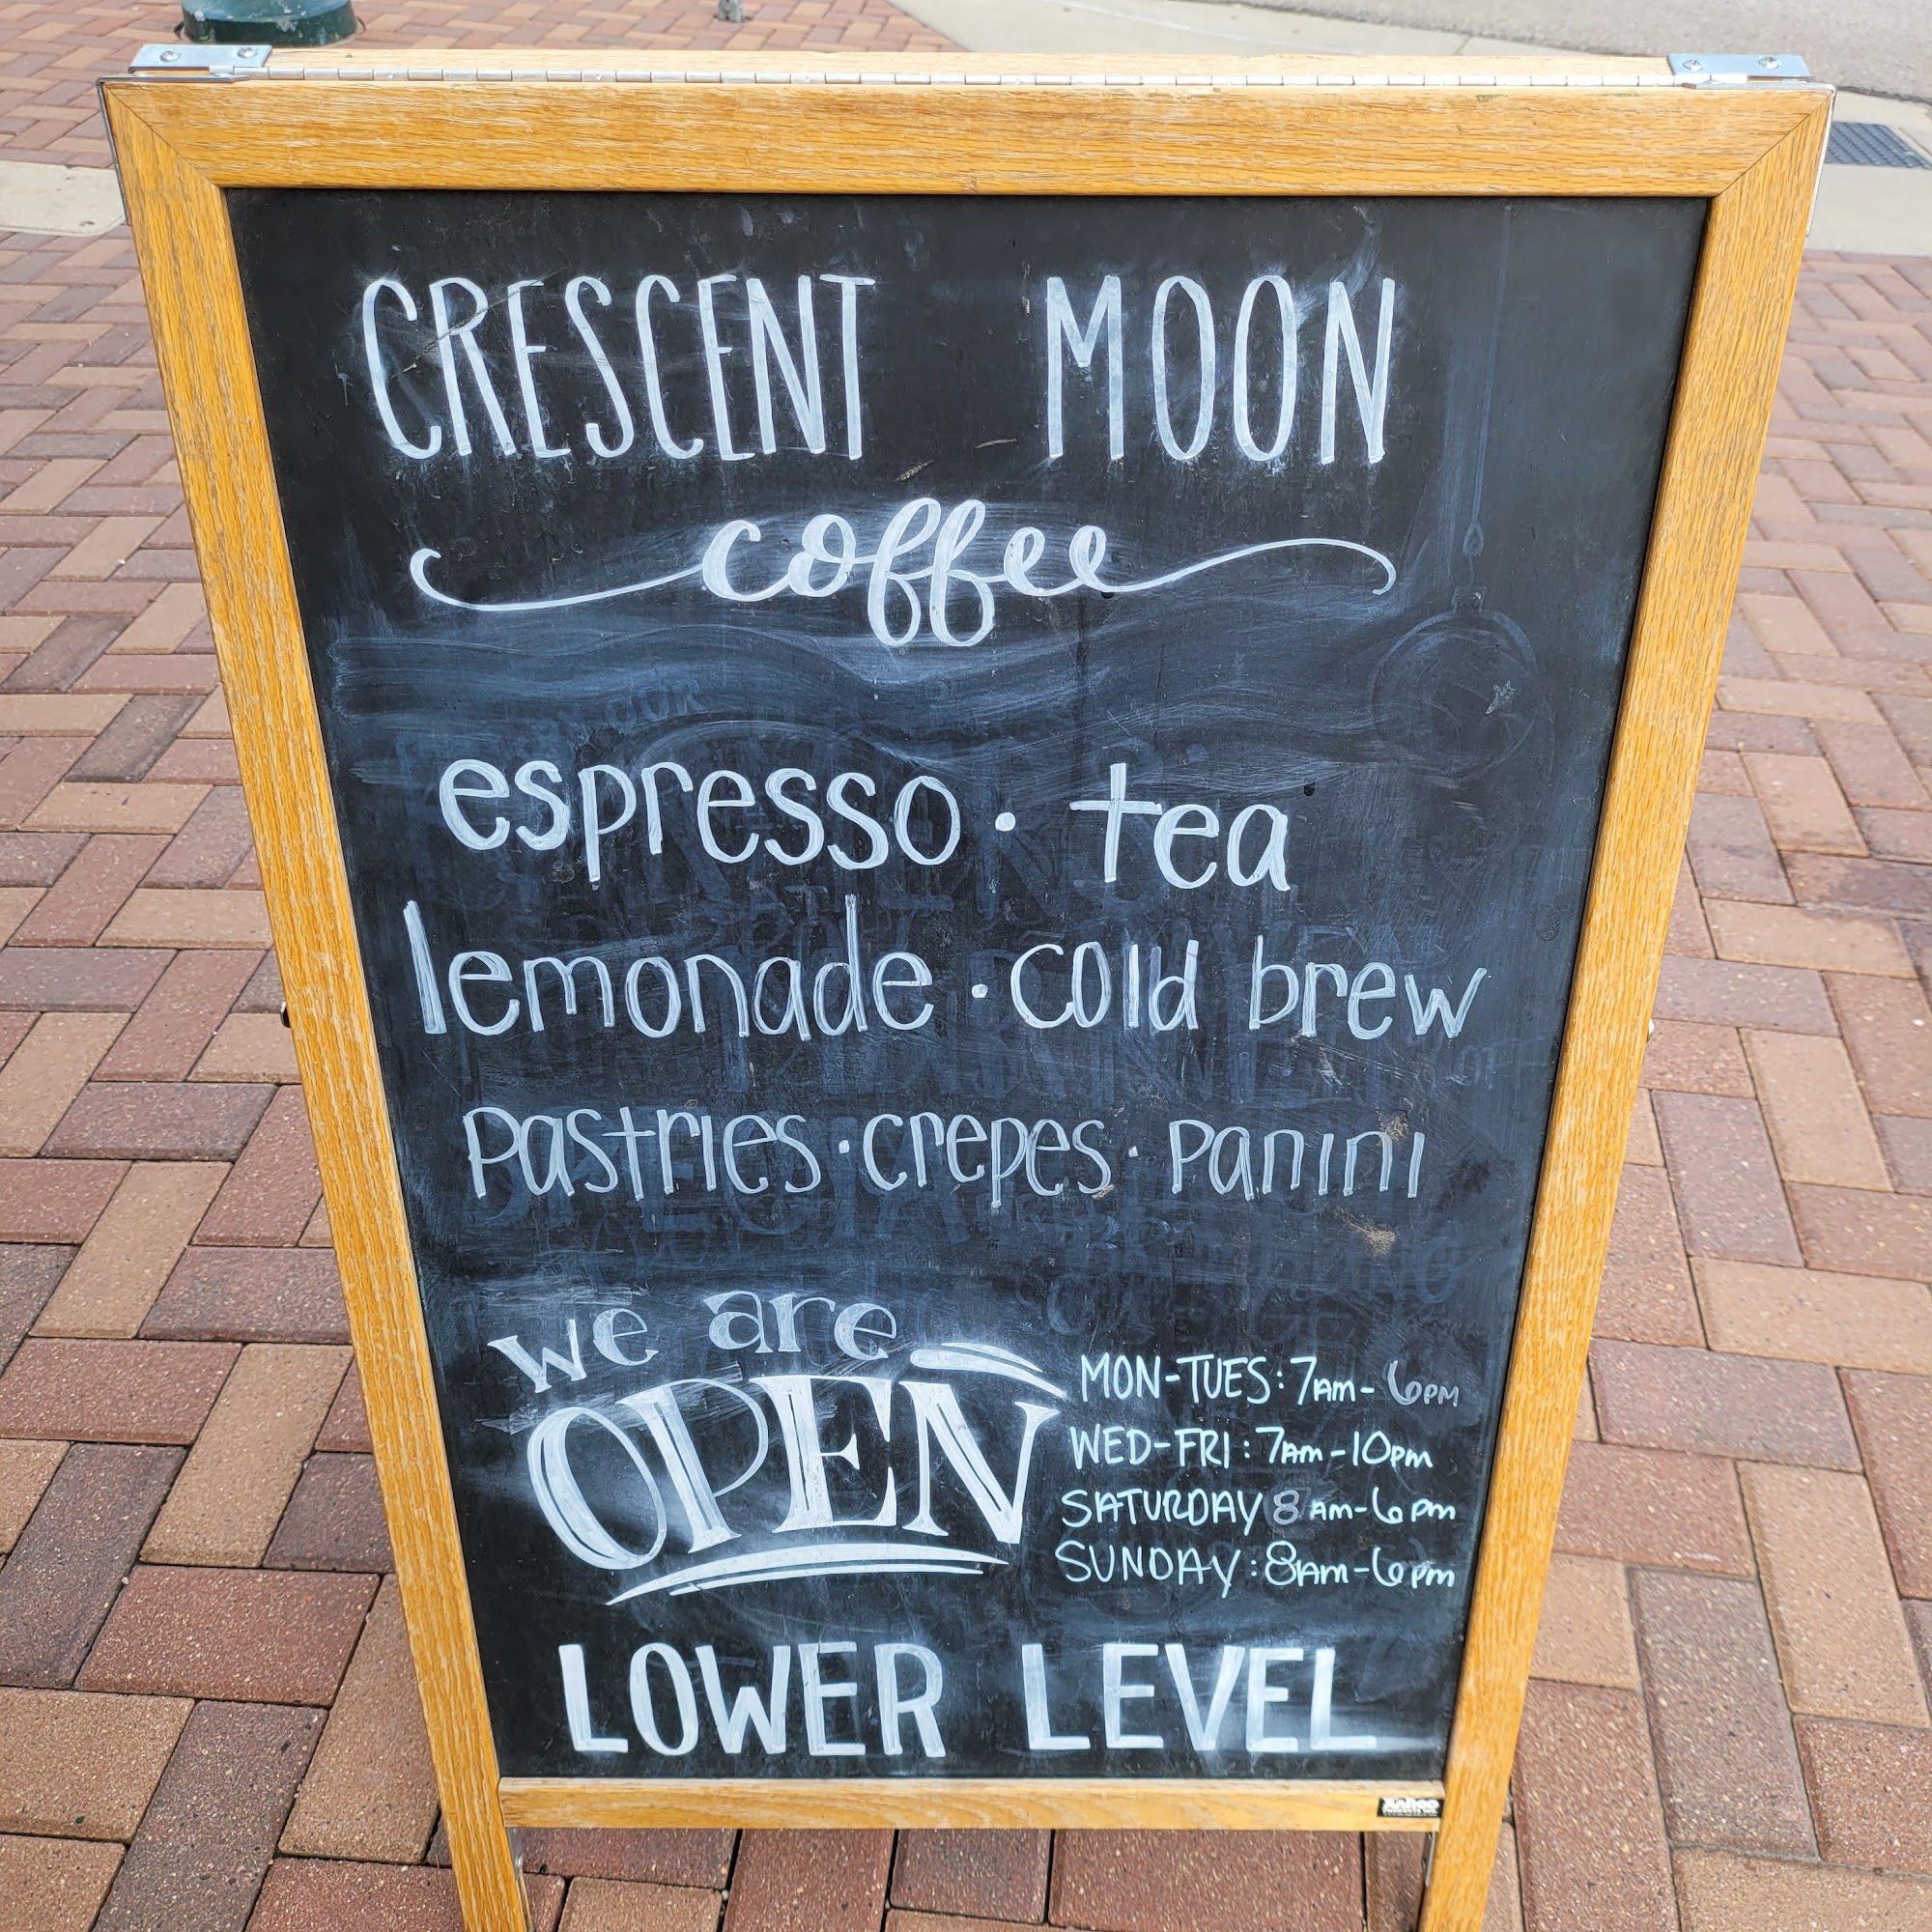 CRESCENT MOON
coffee
espresso · tea
lemonade · cold brew
pastries · crepes · panini
we are
OPEN
MON-TUES: 7AM- 6PM
WED-FRI: 7AM-10PM
SATURDAY 8 AM-6PM
SUNDAY: 8AM-6PM
LOWER LEVEL